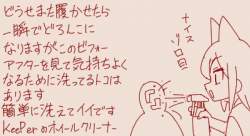 どうせまた履かせたら
一瞬でどろんこに
なりますがこのビフォー
アフターを見て気持ちよく
なるために洗ってるトコは
あります
簡単に洗えてイイです
KeePerのホイールクリーナー
ナイス
ゾロ目